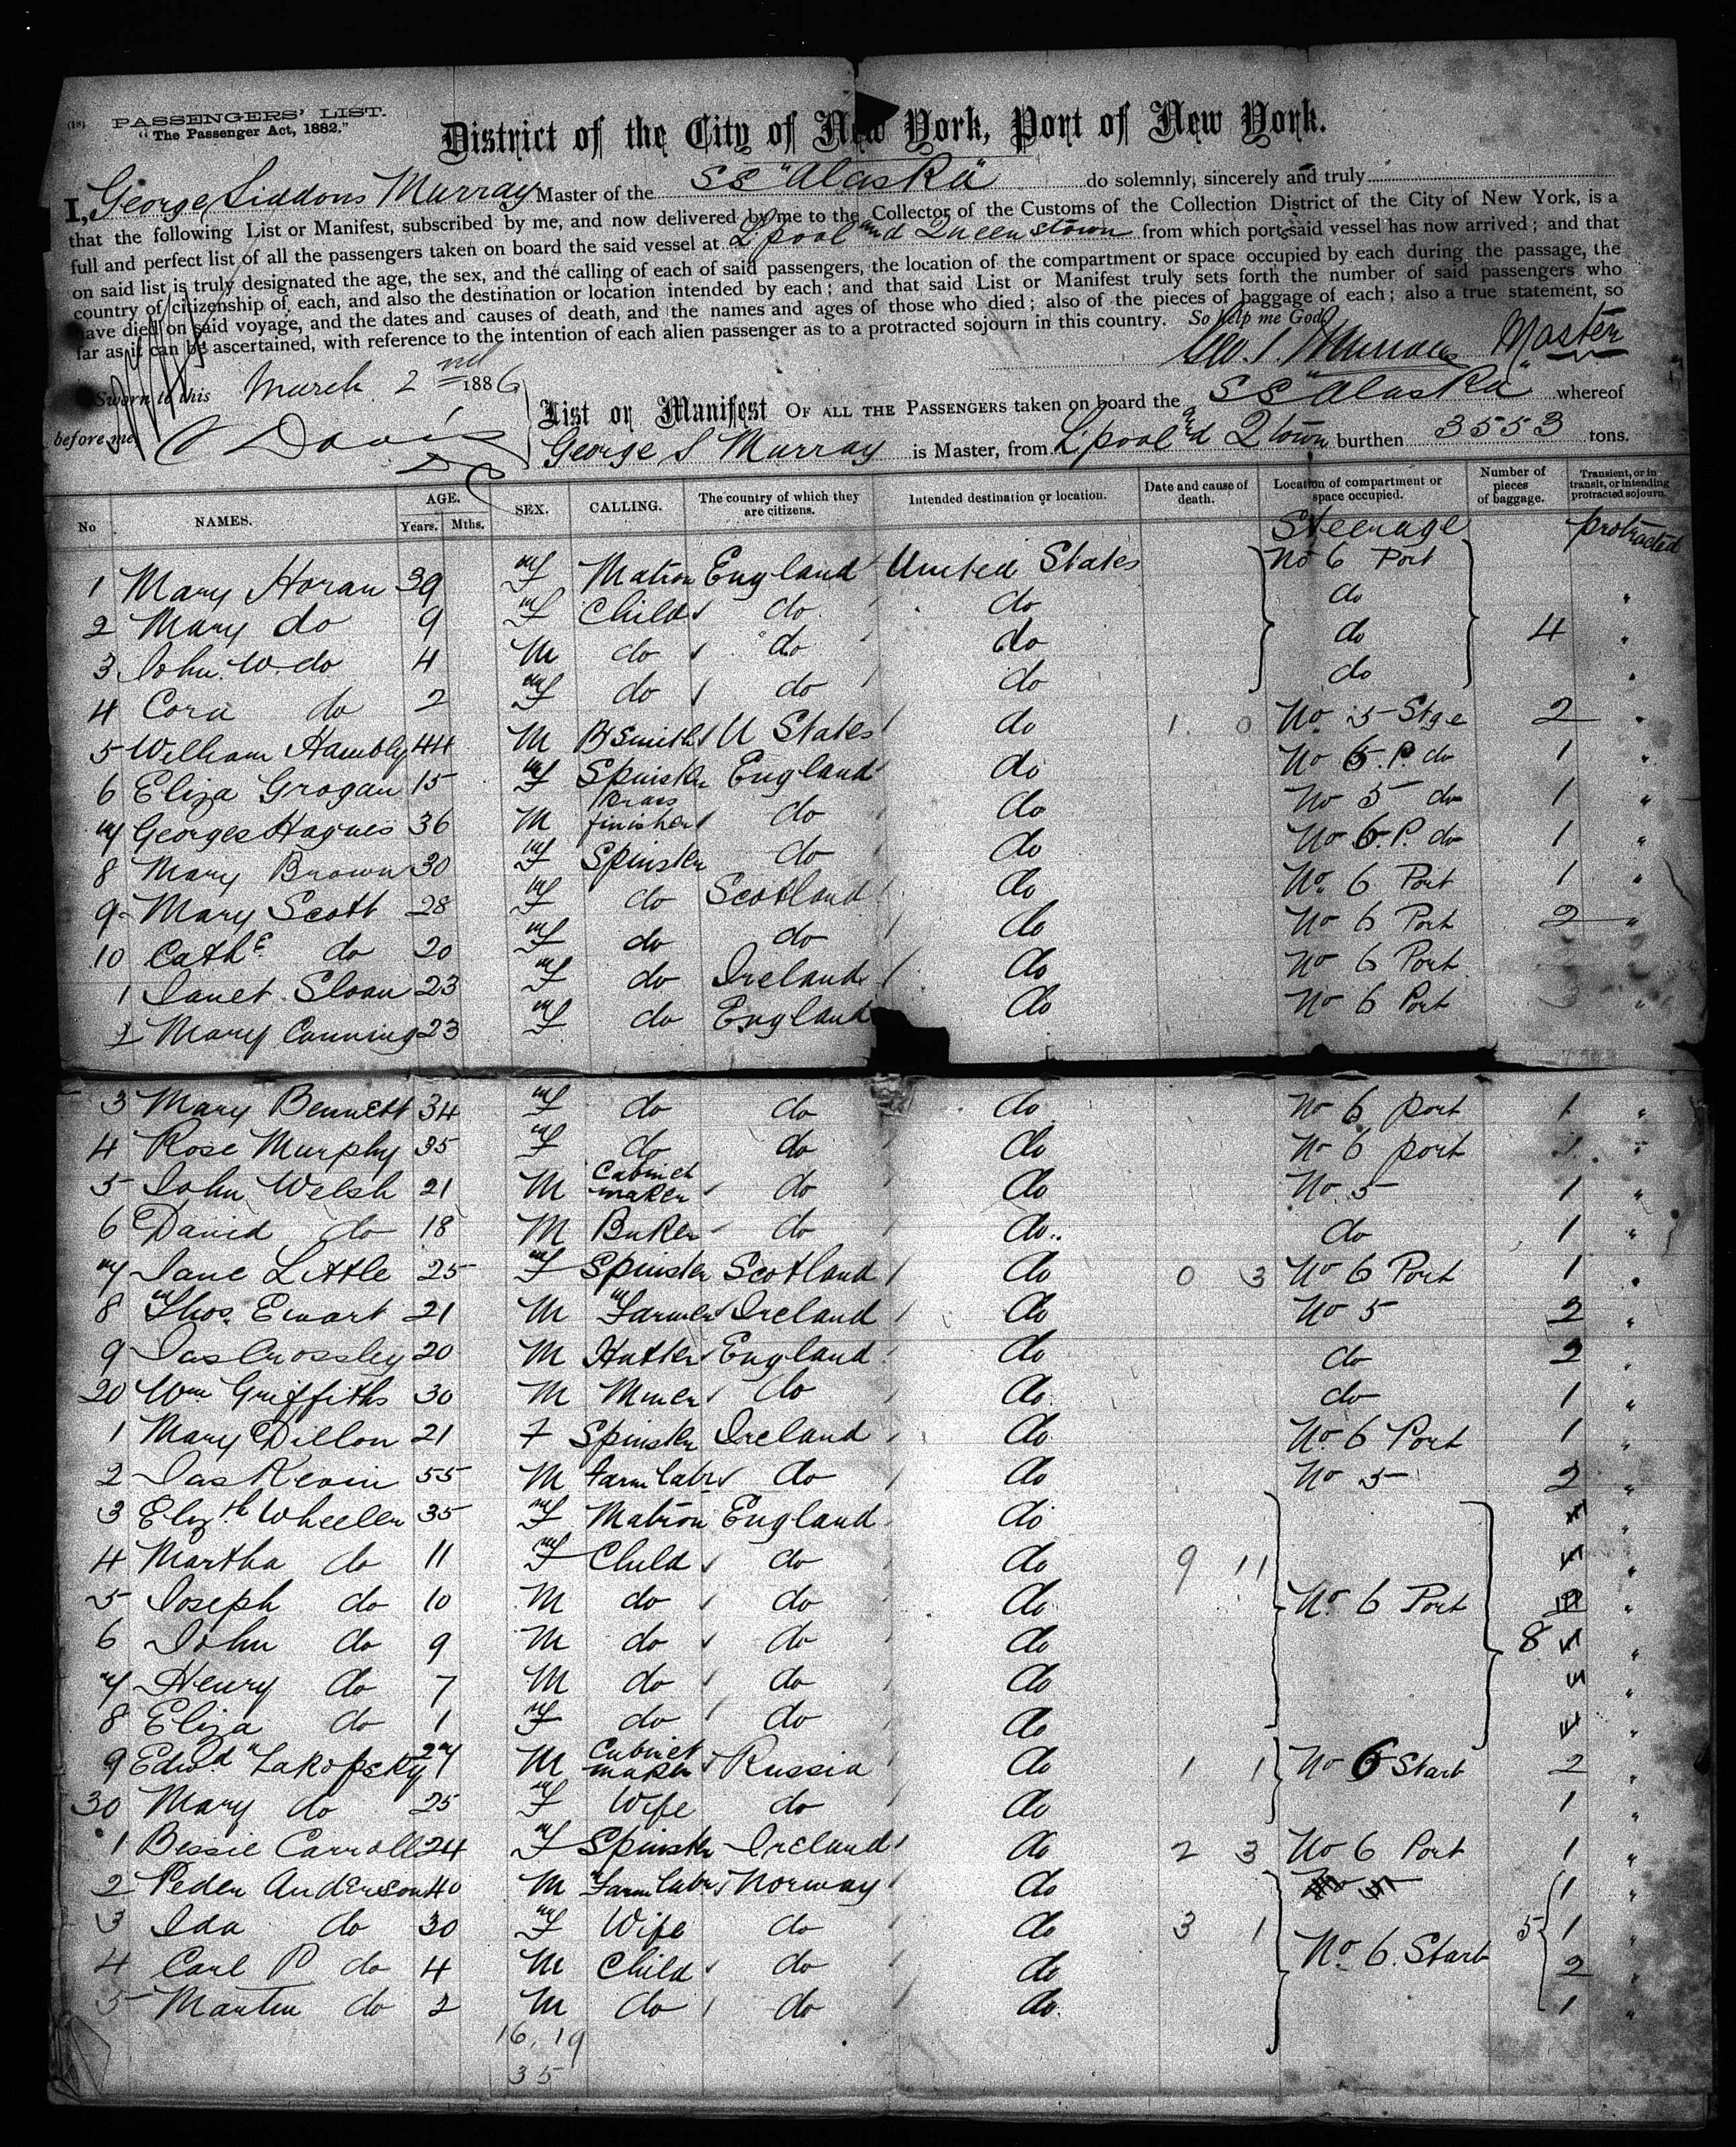 (18) PASSENGERS' LIST.
"The Passenger Act, 1882."
District of the City of New York, Port of New York.
I, George Siddons Murray Master of the SS "Alaska" do solemnly, sincerely and truly
that the following List or Manifest, subscribed by me, and now delivered by me to the Collector of the Customs of the Collection District of the City of New York, is a
full and perfect list of all the passengers taken on board the said vessel at L'pool and Queenstown from which port said vessel has now arrived; and that
on said list is truly designated the age, the sex, and the calling of each of said passengers, the location of the compartment or space occupied by each during the passage, the
country of citizenship of each, and also the destination or location intended by each; and that said List or Manifest truly sets forth the number of said passengers who
have died on said voyage, and the dates and causes of death, and the names and ages of those who died; also of the pieces of baggage of each; also a true statement, so
far as it can be ascertained, with reference to the intention of each alien passenger as to a protracted sojourn in this country. So help me God.
Geo. S. Murray Master
Sworn to this March 2nd 1886
before me Davis
List or Manifest OF ALL THE PASSENGERS taken on board the SS "Alaska" whereof
George S Murray is Master, from L'pool and Q town burthen 3553 tons.
No NAMES. AGE. Years. Mths. SEX. CALLING. The country of which they are citizens. Intended destination or location. Date and cause of death. Location of compartment or space occupied. Number of pieces of baggage. Transient, or in transit, or intending protracted sojourn.
Steerage protracted
1 Mary Horan 39 F Matron England United States No 6 Port
2 Mary do 9 F Child do do do "
3 John W. do 4 M do do do do 4 "
4 Cora do 2 F do do do do "
5 William Hambly 44 M B Smith U States do 1. 0 No 5 Stge 2 "
6 Eliza Grogan 15 F Spinster England do No 6. P. do 1 "
7 George Hagues 36 M Brass finisher do do No 5 do 1 "
8 Mary Brown 30 F Spinster do do No 6. P. do 1 "
9 Mary Scott 28 F do Scotland do No 6 Port 1 "
10 Cathe do 20 F do do do No 6 Port 2 "
1 Janet Sloan 23 F do Ireland do No 6 Port
2 Mary Canning 23 F do England do No 6 Port "
3 Mary Bennett 34 F do do do No 6 port 1 "
4 Rose Murphy 35 F do do do No 6 port 1 "
5 John Welsh 21 M Cabinet maker do do No. 5 1 "
6 David do 18 M Baker do do do 1 "
7 Jane Little 25 F Spinster Scotland do 0 3 No 6 Port 1 "
8 Thos. Ewart 21 M Farmer Ireland do No 5 2 "
9 Jas Crossley 20 M Hatter England do do 2 "
20 Wm Griffiths 30 M Miner do do do 1 "
1 Mary Dillon 21 F Spinster Ireland do No. 6 Port 1 "
2 Jas Kevin 55 M Farm Labr do do No 5 2 "
3 Elizth Wheeler 35 F Matron England do "
4 Martha do 11 F Child do do 9 11 "
5 Joseph do 10 M do do do No. 6 Port "
6 John do 9 M do do do 8 "
7 Henry do 7 M do do do "
8 Eliza do 1 F do do do "
9 Edwd Lakofsky 27 M Cabinet maker Russia do 1 1 No 6 Starb 2 "
30 Mary do 25 F Wife do do 1 "
1 Bessie Carroll 24 F Spinster Ireland do 2 3 No 6 Port 1 "
2 Peder Anderson 40 M Farm Labr Norway do 1 "
3 Ida do 30 F Wife do do 3 1 5 1 "
4 Carl P do 4 M Child do do No. 6. Starb 2 "
5 Martin do 2 M do do do 1 "
16, 19
35